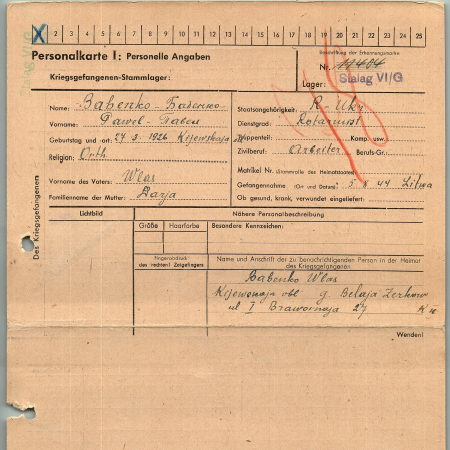 X 2 3 4 5 6 7 8 9 10 11 12 13 14 15 16 17 18 19 20 21 22 23 24 25
Personalkarte I: Personelle Angaben
Kriegsgefangenen-Stammlager:
Beschriftung der Erkennungsmarke
Nr.
Lager: Stalag VI/G
Des Kriegsgefangenen
Name: Babenko - Бабенко
Vorname: Pawel - Павел
Geburtstag und -ort: 27 3. 1926 Kijewskaja
Religion: Orth
Vorname des Vaters: Wlas
Familienname der Mutter: Darja
Staatsangehörigkeit: R-Ukr
Dienstgrad: Rotarmist
Truppenteil: Komp. usw.
Zivilberuf: Arbeiter Berufs-Gr.:
Matrikel Nr. (Stammrolle des Heimatstaates):
Gefangennahme (Ort und Datum): 44 Litwa
Ob gesund, krank, verwundet eingeliefert:
Lichtbild
Nähere Personalbeschreibung
Größe Haarfarbe Besondere Kennzeichen:
Fingerabdruck
des rechten! Zeigefingers
Name und Anschrift der zu benachrichtigenden Person in der Heimat
des Kriegsgefangenen
Babenko Wlas
obl g. Belaja Zerkow
ul 27
Wenden!